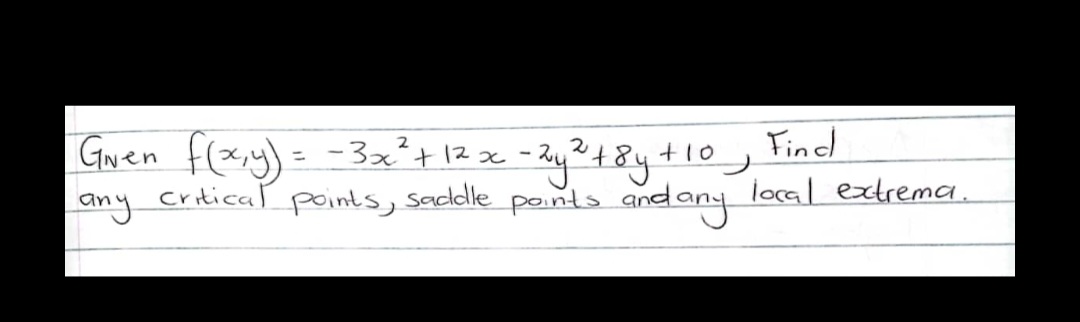 Given f(x,y) = -3x²+12x-2y²+8y+10, Find
any critical points, saddle points and any local extrema.